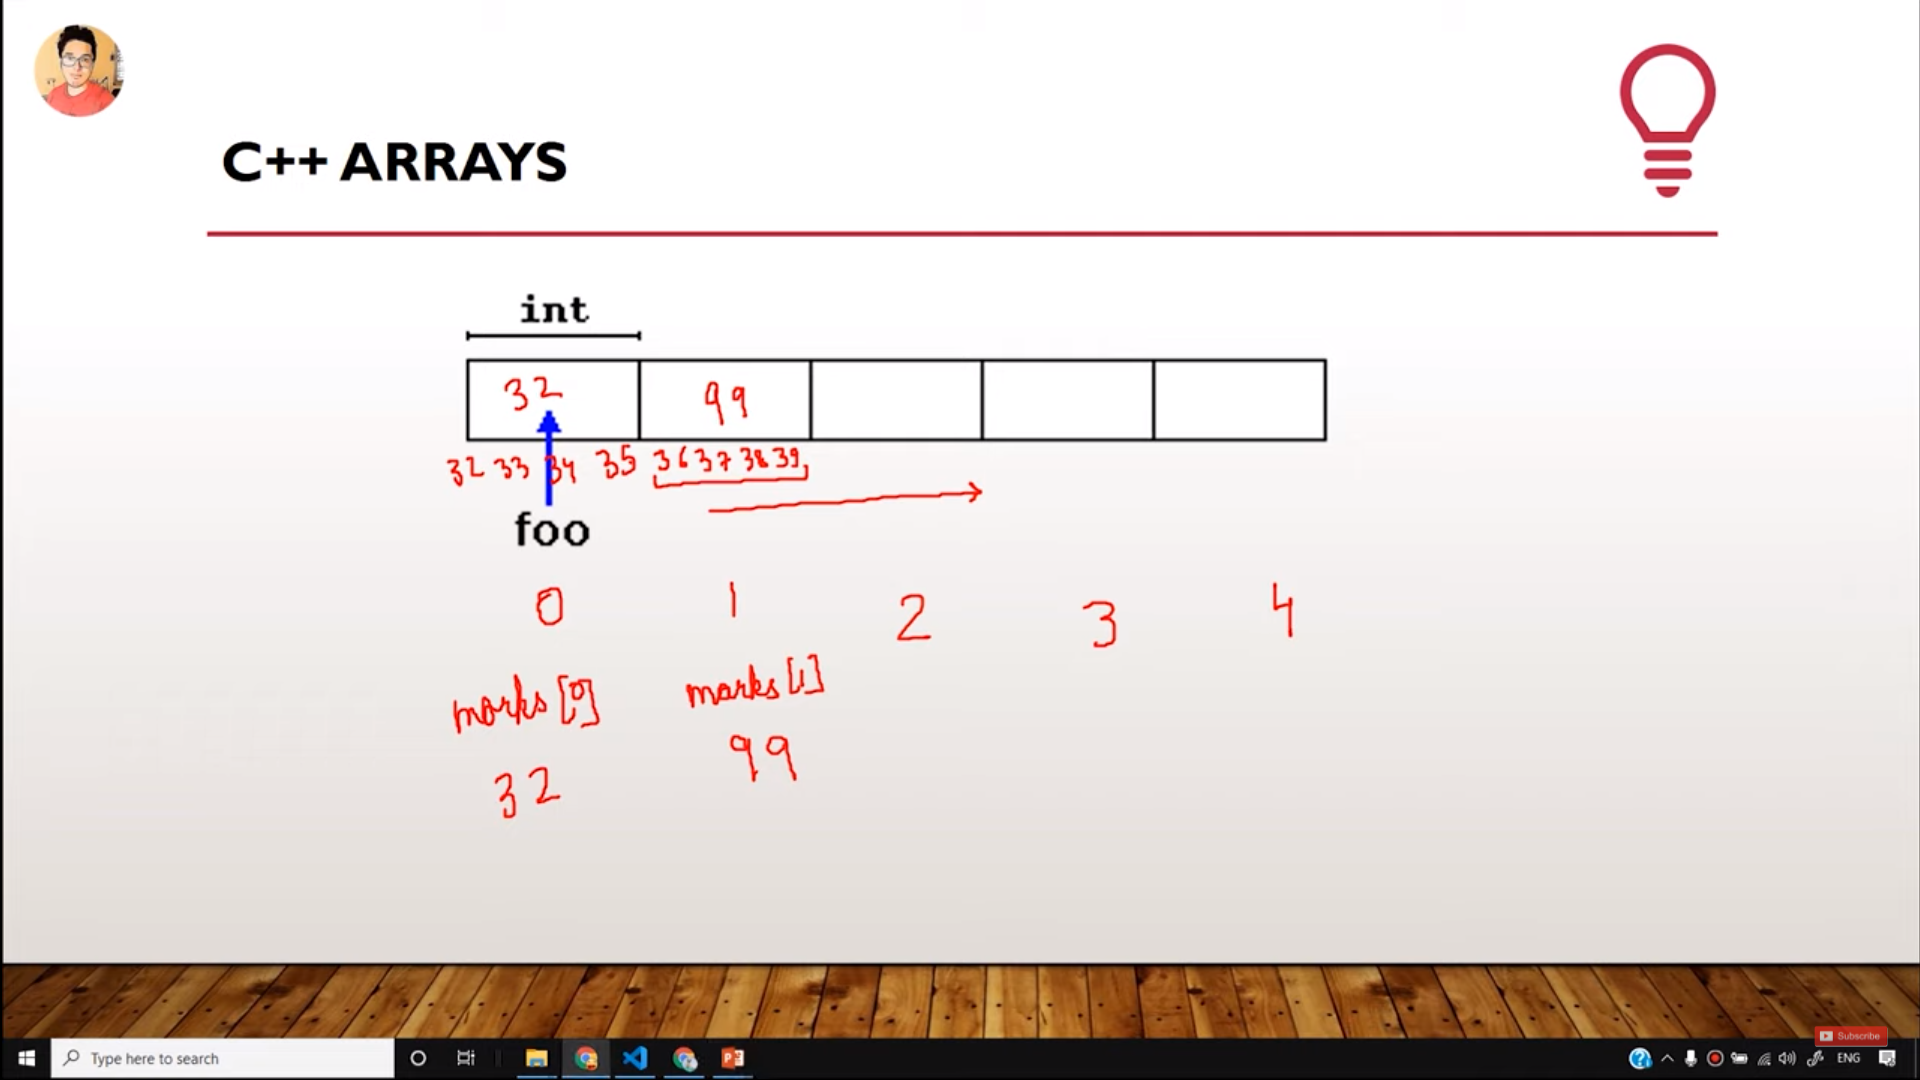 C++ ARRAYS
int
32 99
32 33 34 35 36 37 38 39
foo
0 1 2 3 4
marks [0] marks [1]
32 99
Subscribe
Type here to search
ENG